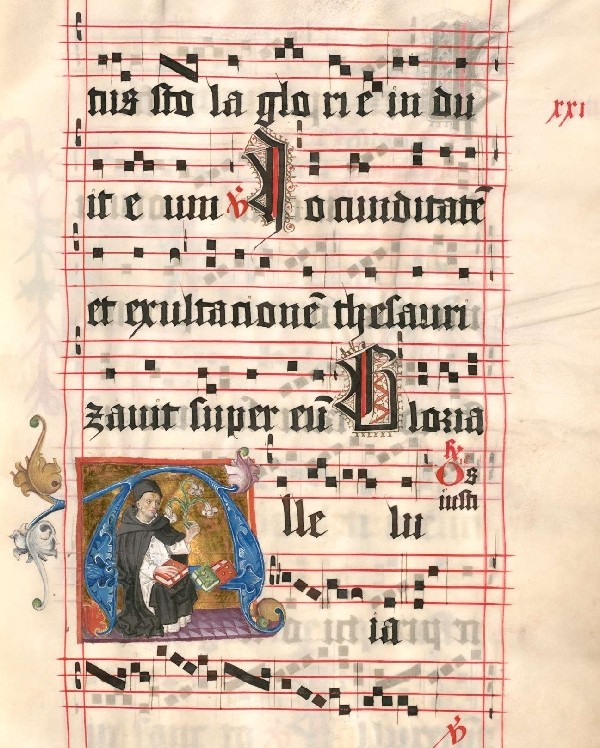 tus sto la glo ri e in du
xxi
it e um ℣ Jocunditatē
et exultacionē thesauri
zavit super eū Gloria
Os
iusti
Alle lu
ia
℣